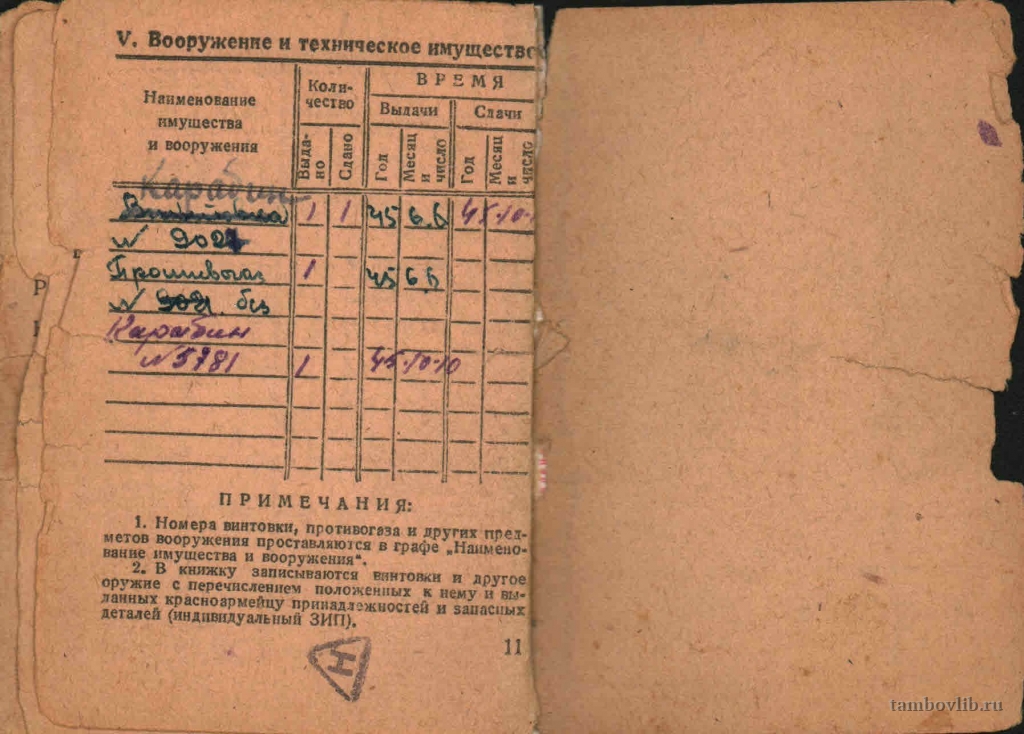 V. Вооружение и техническое имущество
Наименование
имущества
и вооружения
Коли-
чество
ВРЕМЯ
Выдачи
Сдачи
Выда-
но
Сдано
Год
Месяц
и
число
Год
Месяц
и
число
Карабин
1 1 45 6.6 45.10.1
№ 9027
1 45 6.6
№ 9021. без
Карабин
№5781 1 45.10.10
ПРИМЕЧАНИЯ:
1. Номера винтовки, противогаза и других пред-
метов вооружения проставляются в графе „Наимено-
вание имущества и вооружения".
2. В книжку записываются винтовки и другое
оружие с перечислением положенных к нему и вы-
данных красноармейцу принадлежностей и запасных
деталей (индивидуальный ЗИП).
11
Н
tambovlib.ru